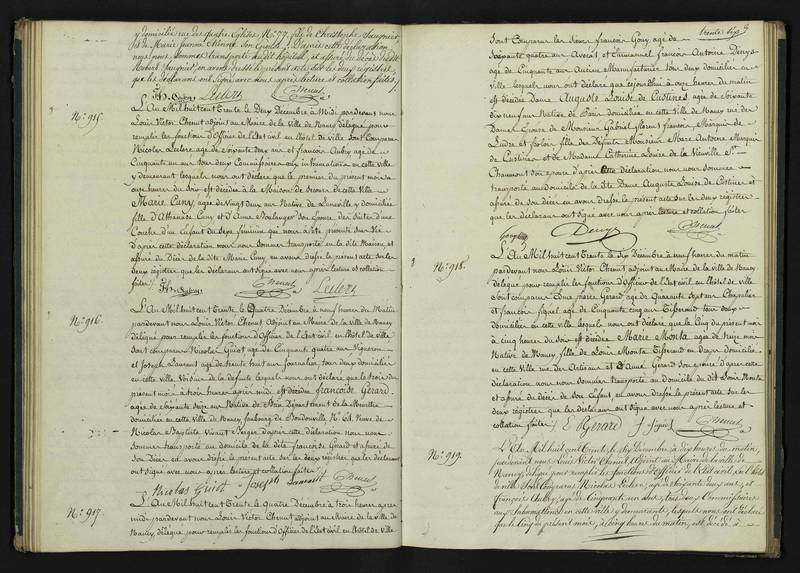 y domiciliée rue des quatre Eglises, N.º 77, fille de Christophe Jacquinet
et de Marie Jeanne Etienne son Epouse. D'après cette déclaration
nous nous sommes transporté audit hôpital, et assuré du décès de
en avons dressé le présent acte sur les deux registres,
que les déclarants ont signé avec nous après lecture et collation faites
Leclerc Chenut
N.º 915.
L'An Mil huit cent Trente le Deux Décembre à Midi pardevant nous
Louis Victor Chenut adjoint au Maire de la Ville de Nancy délégué pour
remplir les fonctions d'Officier de l'Etat civil en l'hôtel de Ville, sont Comparus
Nicolas Leclerc agé de soixante deux ans et françois Aubry agé de
Cinquante un ans tous deux Commissaires aux inhumations en cette ville
y demeurant lesquels nous ont déclaré que le premier du présent mois à
onze heures du soir est décédée à la Maison de Secours de cette Ville
Marie Cuny, agée de Vingt Deux ans Native de Lunéville y domiciliée
fille d'Athanase Cuny et d'Anne Boulanger son Epouse des suites d'une
Couche d'un Enfant du Sexe féminin qui nous a été présenté sans Vie
d'après cette déclaration nous nous sommes transporté en la dite Maison, et
assuré du Décès de la dite Marie Cuny, en avons dressé le présent acte sur les
deux registres que les déclarans ont signé avec nous après lecture et collation
faites
Chenut Leclerc
N.º 916.
L'An Mil huit cent Trente le Quatre Décembre à neuf heures du Matin
pardevant nous Louis Victor Chenut Adjoint au Maire de la Ville de Nancy
délégué pour remplir les fonctions d'Officier de l'Etat civil en l'hôtel de Ville
sont comparus Nicolas Guiot agé de Cinquante quatre ans Vigneron
et Joseph Laurent agé de trente huit ans Journalier tous deux domiciliés
en cette ville Voisins de la défunte lesquels nous ont déclaré que le trois du
présent mois à trois heures après midi est décédée françoise Gérard
agée de soixante Seize ans Native de Département de la Meurthe
domiciliée en cette Ville de Nancy, faubourg de Boudonville N.º 63. Veuve de
Nicolas Baptiste Vivant Berger d'après cette déclaration nous nous
sommes transporté au domicile de la dite françoise Gérard et assuré de
son Décès et avons dressé le présent acte sur les deux registres que les déclarans
ont signé avec nous après lecture et collation faites
Nicolas Guiot Joseph Laurent Chenut
N.º 917.
L'An Mil huit cent Trente le Quatre Décembre à trois heures après
midi, pardevant nous Louis Victor Chenut adjoint au Maire de la Ville de
Nancy, délégué pour remplir les fonctions d'Officier de l'Etat civil en l'hôtel de Ville
sont Comparus les Sieurs françois Gouy agé de
Soixante quatre ans, Avocat et Emmanuel françois Antoine Denys
agé de Cinquante ans Ancien Manufacturier tous deux domiciliés en cette
ville lesquels nous ont déclaré que cejourd'hui à onze heures du matin
est décédée Dame Auguste Louise de Custines, agée de soixante
dix neuf ans Native de Paris domiciliée en cette Ville de Nancy rue des
Dames Epouse de Monsieur Gabriel florent françois, Marquis de
Ludre et frolois fille des Défunts Monsieur Marc Antoine Marquis
de Custines et de Madame Catherine Louise de la Vieuville S.t
Chaumont son épouse d'après cette déclaration nous nous sommes
transporté au domicile de la Dite Dame Auguste Louise de Custines et
assuré de son décès en avons dressé le présent acte sur les deux registres
que les déclarans ont signé avec nous après lecture et collation faites
Gouy Denys Chenut
N.º 918.
L'An Mil huit cent Trente le Six Décembre à neuf heures du matin
pardevant nous Louis Victor Chenut adjoint au Maire de la Ville de Nancy
délégué pour remplir les fonctions d'Officier de l'Etat civil en l'hôtel de Ville
sont comparus Gérard agé de Quarante Sept ans Chapelier
et françois Signé agé de Cinquante cinq ans Tisserand tous deux
domiciliés en cette ville lesquels nous ont déclaré que le Cinq du présent mois
à cinq heures du soir est décédée Marie Monta agée de Treize mois
Native de Nancy, fille de Louis Monta Tisserand en draps domicilié
en cette Ville rue des Artisans et d'Anne Gérard son épouse d'après cette
déclaration nous nous sommes transporté au domicile du dit Louis Monta
et assuré du décès de son Enfant, en avons dressé le présent acte sur les
deux registres que les déclarans ont signé avec nous après lecture et
collation faites
Gérard f. Signé Chenut
N.º 919.
L'An Mil huit cent Trente, le six Décembre à dix heures du matin,
pardevant nous Louis Victor Chenut Adjoint au Maire de la ville de
Nancy, délégué pour remplir les fonctions d'Officier de l'Etat civil, en l'hôtel
de ville sont Comparus Nicolas Leclerc, agé de soixante deux ans, et
françois Aubry, agé de Cinquante un ans, tous deux Commissaires
aux Inhumations en cette ville y demeurants, lesquels nous ont déclaré
que le Cinq du présent mois, à cinq heures du matin, est décédé à